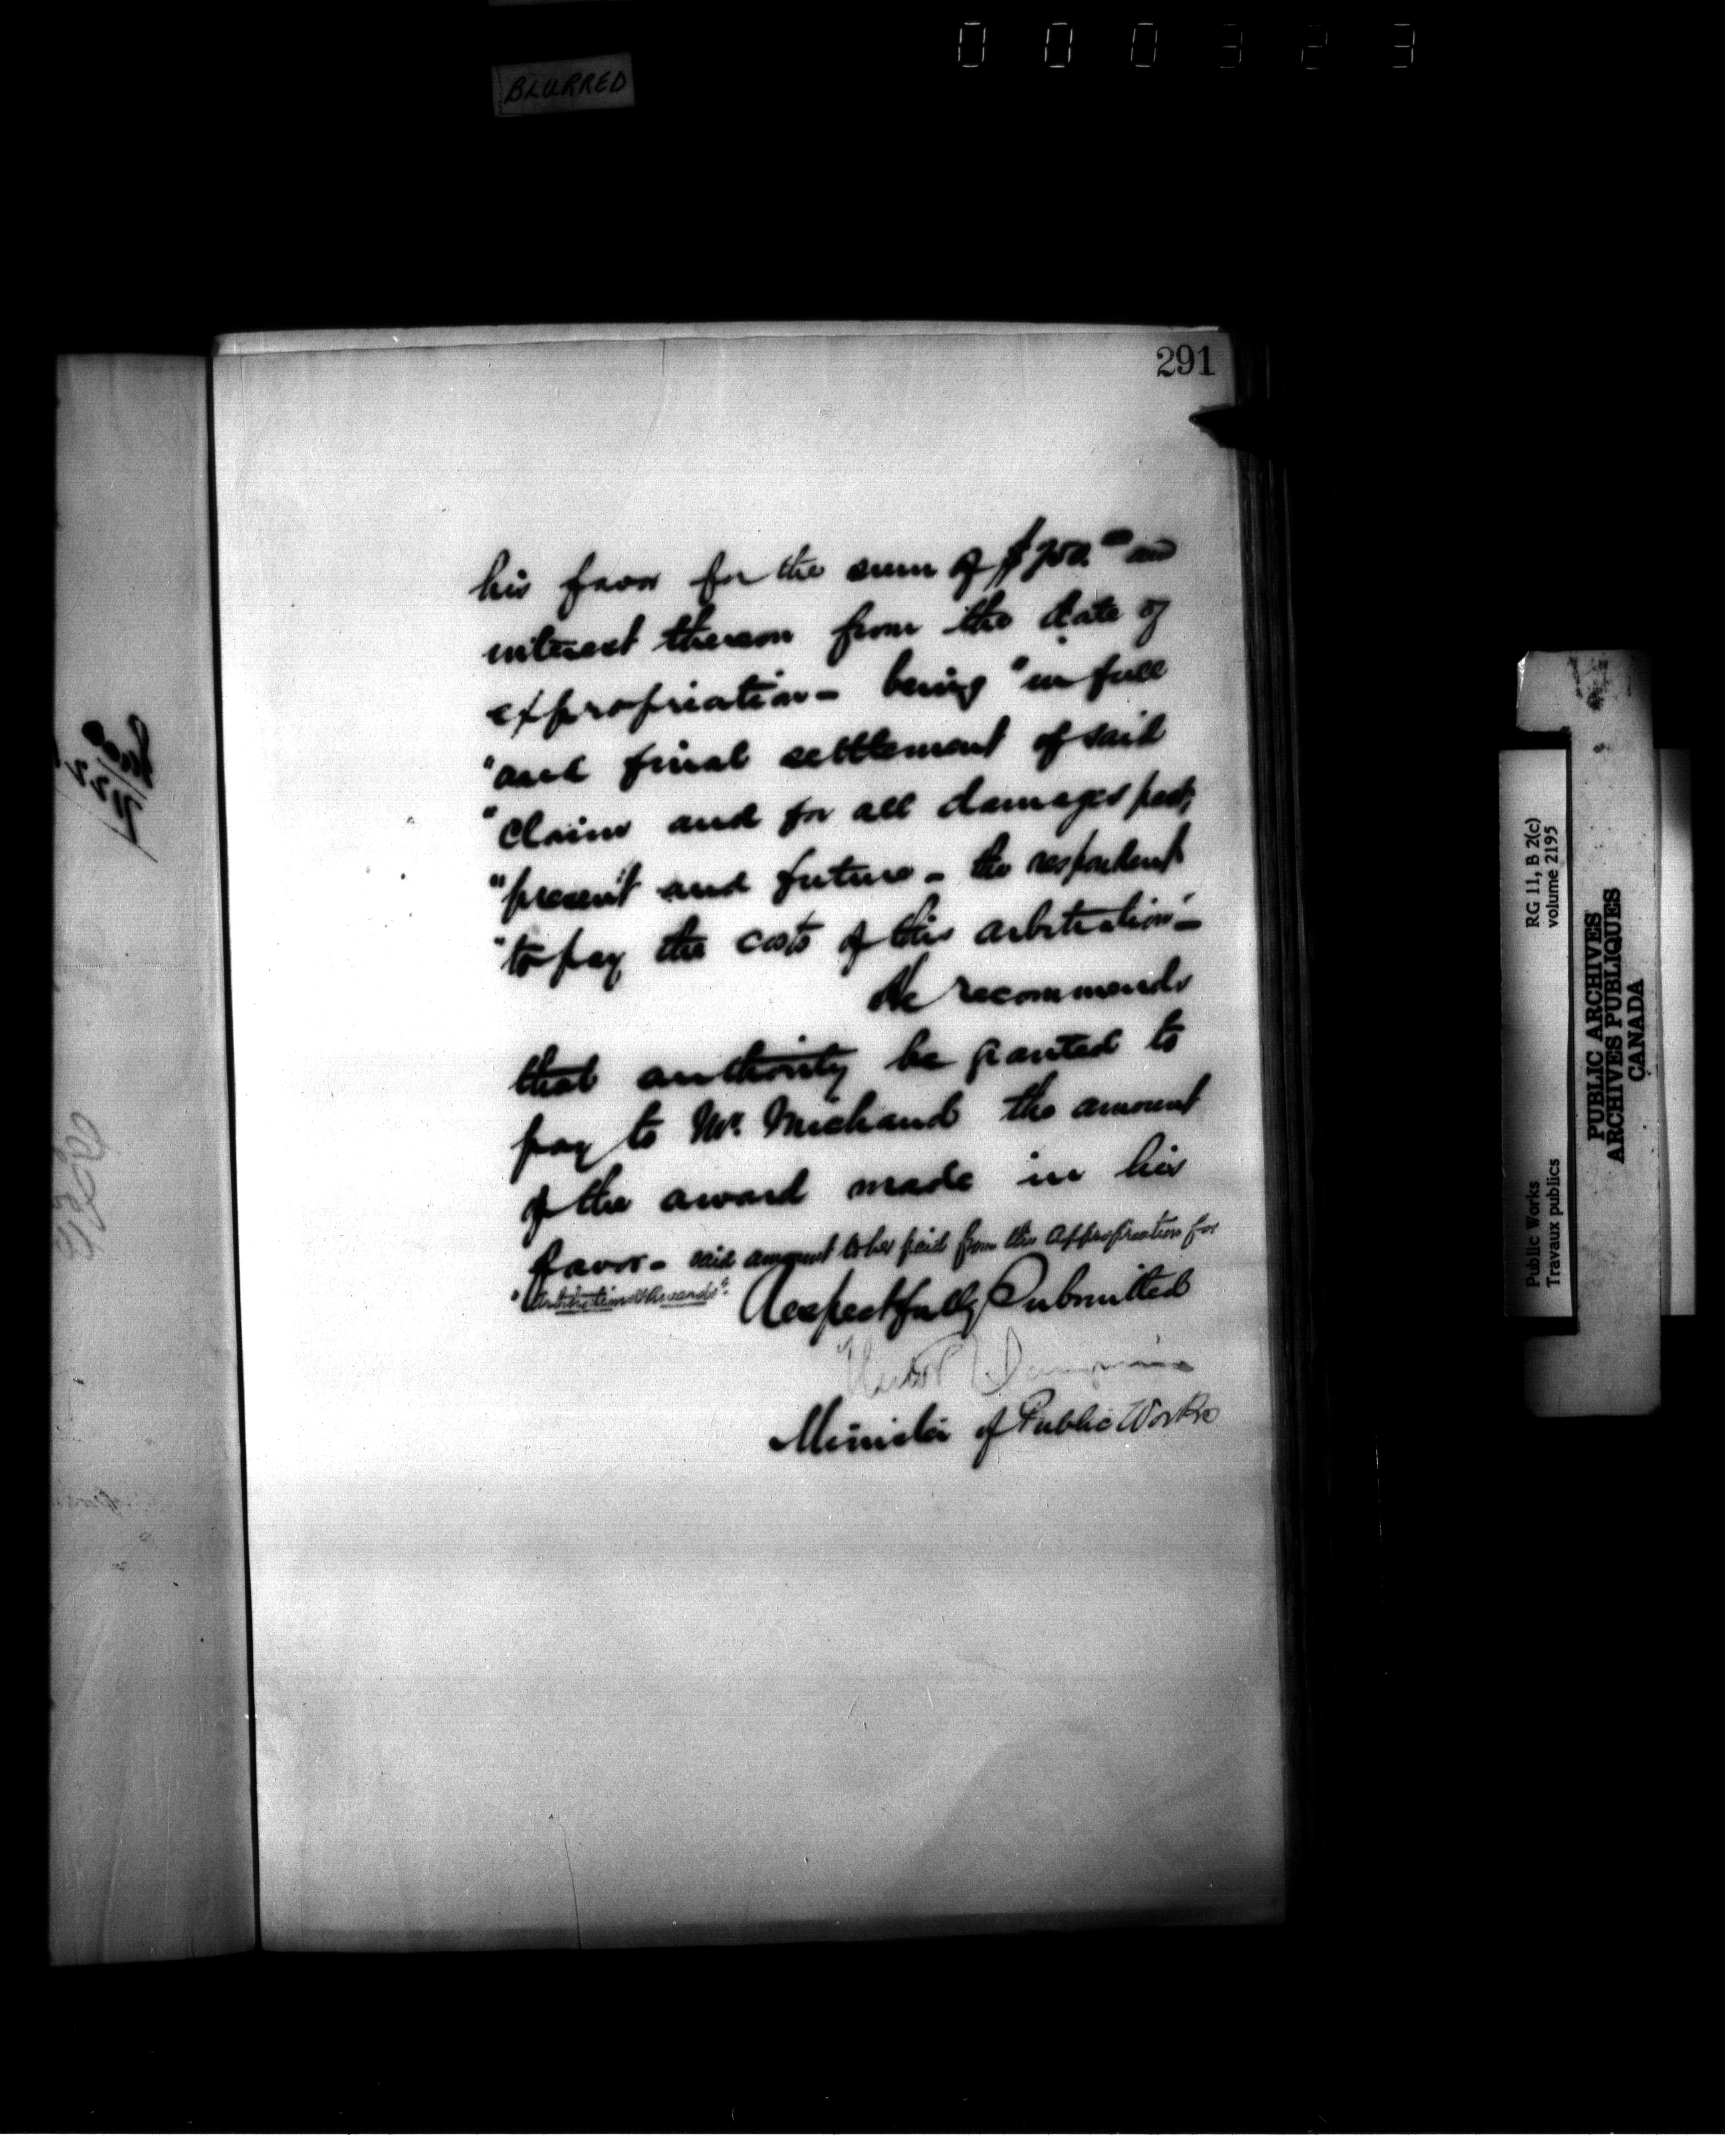 000323
BLURRED
291
his favor for the sum of $700.00 and
interest thereon from the date of
expropriation - being "in full
"and final settlement of said
"Claim and for all damages past,
"present and future - the respondent
"to pay the costs of this arbitration" -
He recommends
that authority be granted to
pay to Mr. Michaud the amount
of the award made in his
favor - said amount to be paid from the Appropriation for
"Arbitrations & Awards".
Respectfully Submitted
Minister of Public Works
RG 11, B 2(c)
volume 2195
Public Works
Travaux publics
PUBLIC ARCHIVES
ARCHIVES PUBLIQUES
CANADA